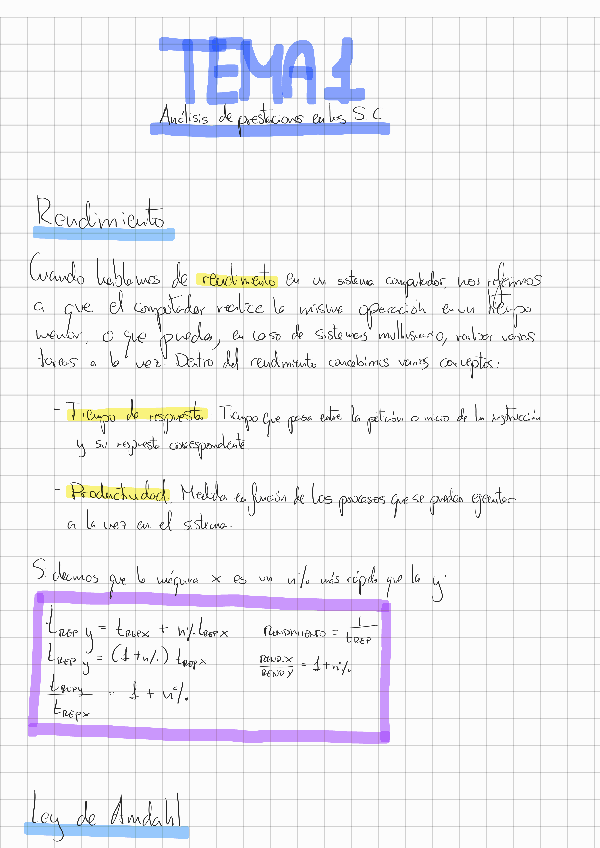 TEMA 1
Análisis de prestaciones en los S C
Rendimiento
Cuando hablamos de rendimiento en un sistema computador, nos referimos
a que el computador realice la misma operación en un tiempo
menor, o que pueda, en caso de sistemas multiusuario, realizar varias
tareas a la vez. Dentro del rendimiento concebimos varios conceptos:
- Tiempo de respuesta. Tiempo que pasa entre la petición o inicio de la instrucción
y su respuesta correspondiente
- Productividad. Medida en función de los procesos que se puedan ejecutar
a la vez en el sistema.
Si decimos que la máquina x es un n% más rápido que la y:
t REP y = t REP x + n% t REP x
t REP y = (1+n%) t REP x
t REP y / t REP x = 1 + n%
RENDIMIENTO = 1 / t REP
REND. X / REND Y = 1+n%
Ley de Amdahl